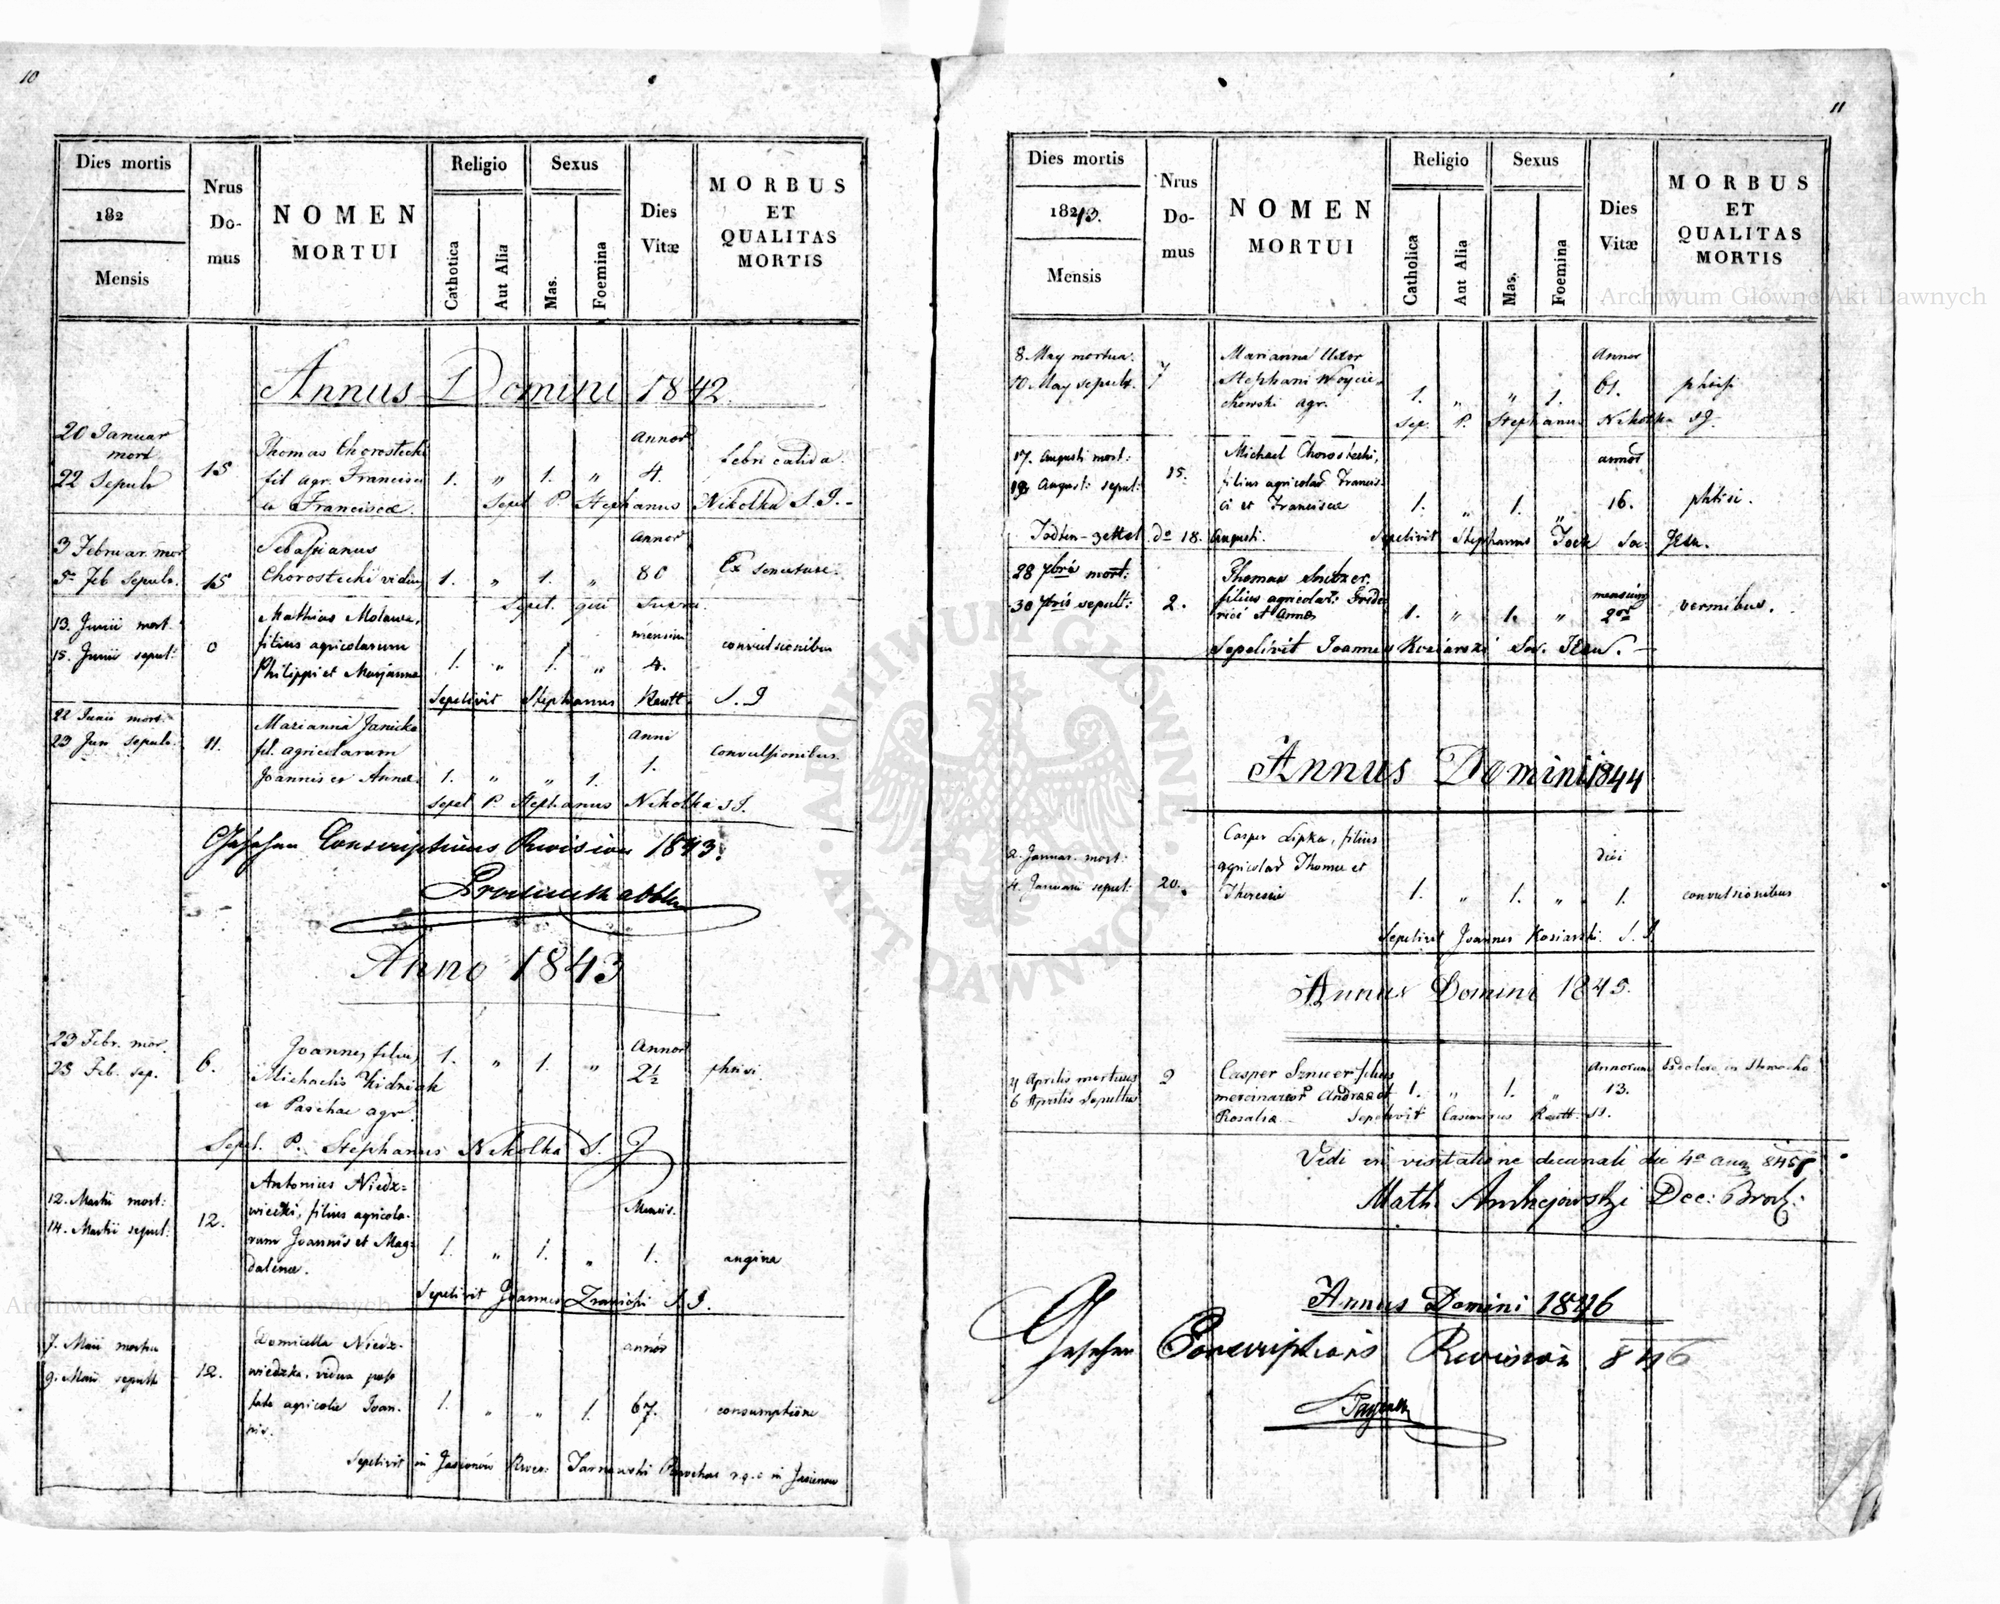 10
Dies mortis
182
Mensis
Nrus Do-mus
NOMEN MORTUI
Religio
Catholica
Aut Alia
Sexus
Mas.
Foemina
Dies Vitæ
MORBUS ET QUALITAS MORTIS
Annus Domini 1842.
20 Januar mort
22 Sepult
15
Thomas Chorostecki
fil agr. Francisci
et Franciscæ
1. " 1. "
Annor
4.
febri calida.
Sepel P. Stephanus Nikolka S. J. -
3 Februar. mor
5 Feb Sepult.
15
Sebastianus
Chorostecki viduus
1. " 1. "
Annor
80
Ex senectute.
Sepel. qui supra.
13. Junii mort.
15. Junii sepult:
0
Mathias
filius agricolarum
Philippi et Marjannæ
1. " 1. "
mensium
4.
convulsionibus
Sepelivit Stephanus Rautt. S. J
22 Junii mort.
23 Jun sepult.
11.
Marianna
fil. agricolarum
Joannis et Annæ.
1. " " 1.
Anni
1.
Convulsionibus.
Sepel P. Stephanus Nikolka S J.
Gesehen Conscriptions Revision 1843.
Anno 1843
23 Febr. mor.
25 Feb. sep.
6.
Joannes filius
Michaelis
et Paschae agr.
1. " 1. "
Annor
2½
phtisi.
Sepel. P. Stephanus Nikolka S. J
12. Martii mort:
14. Martii sepult:
12.
Antonius Niedz=
wiecki, filius agricola-
rum Joannis et Mag=
dalenæ.
1. " 1. "
Mensis.
1.
angina
Sepelivit Joannes S. J.
7. Maii mortua
9. Maii sepulta
12.
Domicella Niedz-
wiedzka, vidua post
fata agricolæ Joan-
nis.
1. " " 1.
annor
67.
consumptione
Sepelivit in Jasionów Tarnawski Parochus r. g. c in Jasionow
11
Dies mortis
1843.
Mensis
Nrus Do-mus
NOMEN MORTUI
Religio
Catholica
Aut Alia
Sexus
Mas.
Foemina
Dies Vitæ
MORBUS ET QUALITAS MORTIS
8. May mortua.
10. May sepult.
7
Marianna Uxor
Stephani Woycie-
chowski agr.
1. " " 1.
Annor
61.
phtisi
Sep. P. Stephanus Nikolka SJ.
17. Augusti mort:
19. Augusti sepult:
15.
Michael Chorostecki,
filius agricolar Francis-
ci et Franciscæ
1. " 1. "
annor
16.
phtisi.
Todten-zettel do 18. Augusti. Sepelivit Stephanus Soc. Jesu.
28 7bris mort:
30 7bris sepult:
2.
Thomas
filius agricolar: Fride-
rici et Annæ
1. " 1. "
mensium
2
vermibus.
Sepelivit Joannes Kosiarski Soc. Jesu. -
Annus Domini 1844
2. Januar. mort:
4. Januarii sepult:
20.
Casper Lipka, filius
agricolar Thomæ et
Theresiæ
1. " 1. "
diei
1.
convulsionibus
Sepelivit Joannes Kosiarski. S. J
Annus Domini 1845.
4 Aprilis mortuus
6 Aprilis sepultus
2
Casper filius
mercinarior Andreæ et
Rosaliæ
1. " 1. "
Annorum
13.
Ex dolore in stomacho
Sepelivit Casimirus Rautt SJ.
Vidi in visitatione decanali die 4a aug 845
Math. Andrejowski Dec: Brod:
Annus Domini 1846
Gesehen Conscriptions Revision 846
Archiwum Główne Akt Dawnych
Archiwum Główne Akt Dawnych
ARCHIWUM GŁÓWNE AKT DAWNYCH